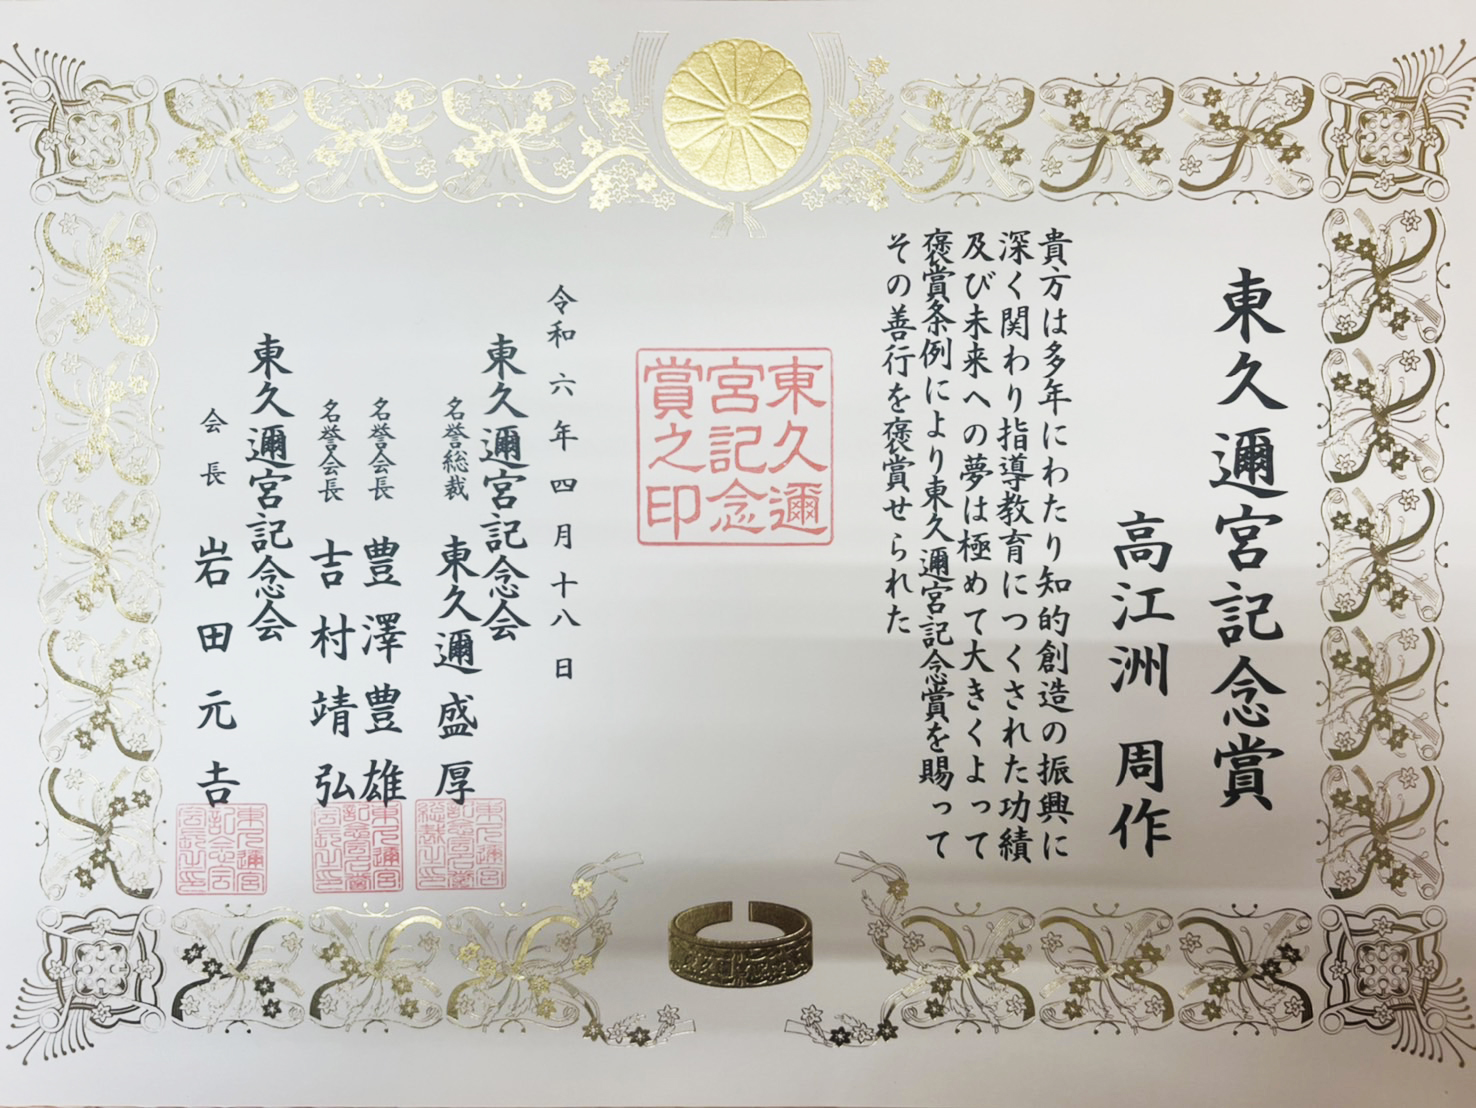 東久邇宮記念賞
高江洲 周作
貴方は多年にわたり知的創造の振興に
深く関わり指導教育につくされた功績
及び未来への夢は極めて大きくよって
褒賞条例により東久邇宮記念賞を賜って
その善行を褒賞せられた
東久邇
宮記念
賞之印
令和六年四月十八日
東久邇宮記念会
名誉総裁 東久邇盛厚
名誉会長 豊澤豊雄
名誉会長 吉村靖弘
東久邇宮記念会
会長 岩田元吉